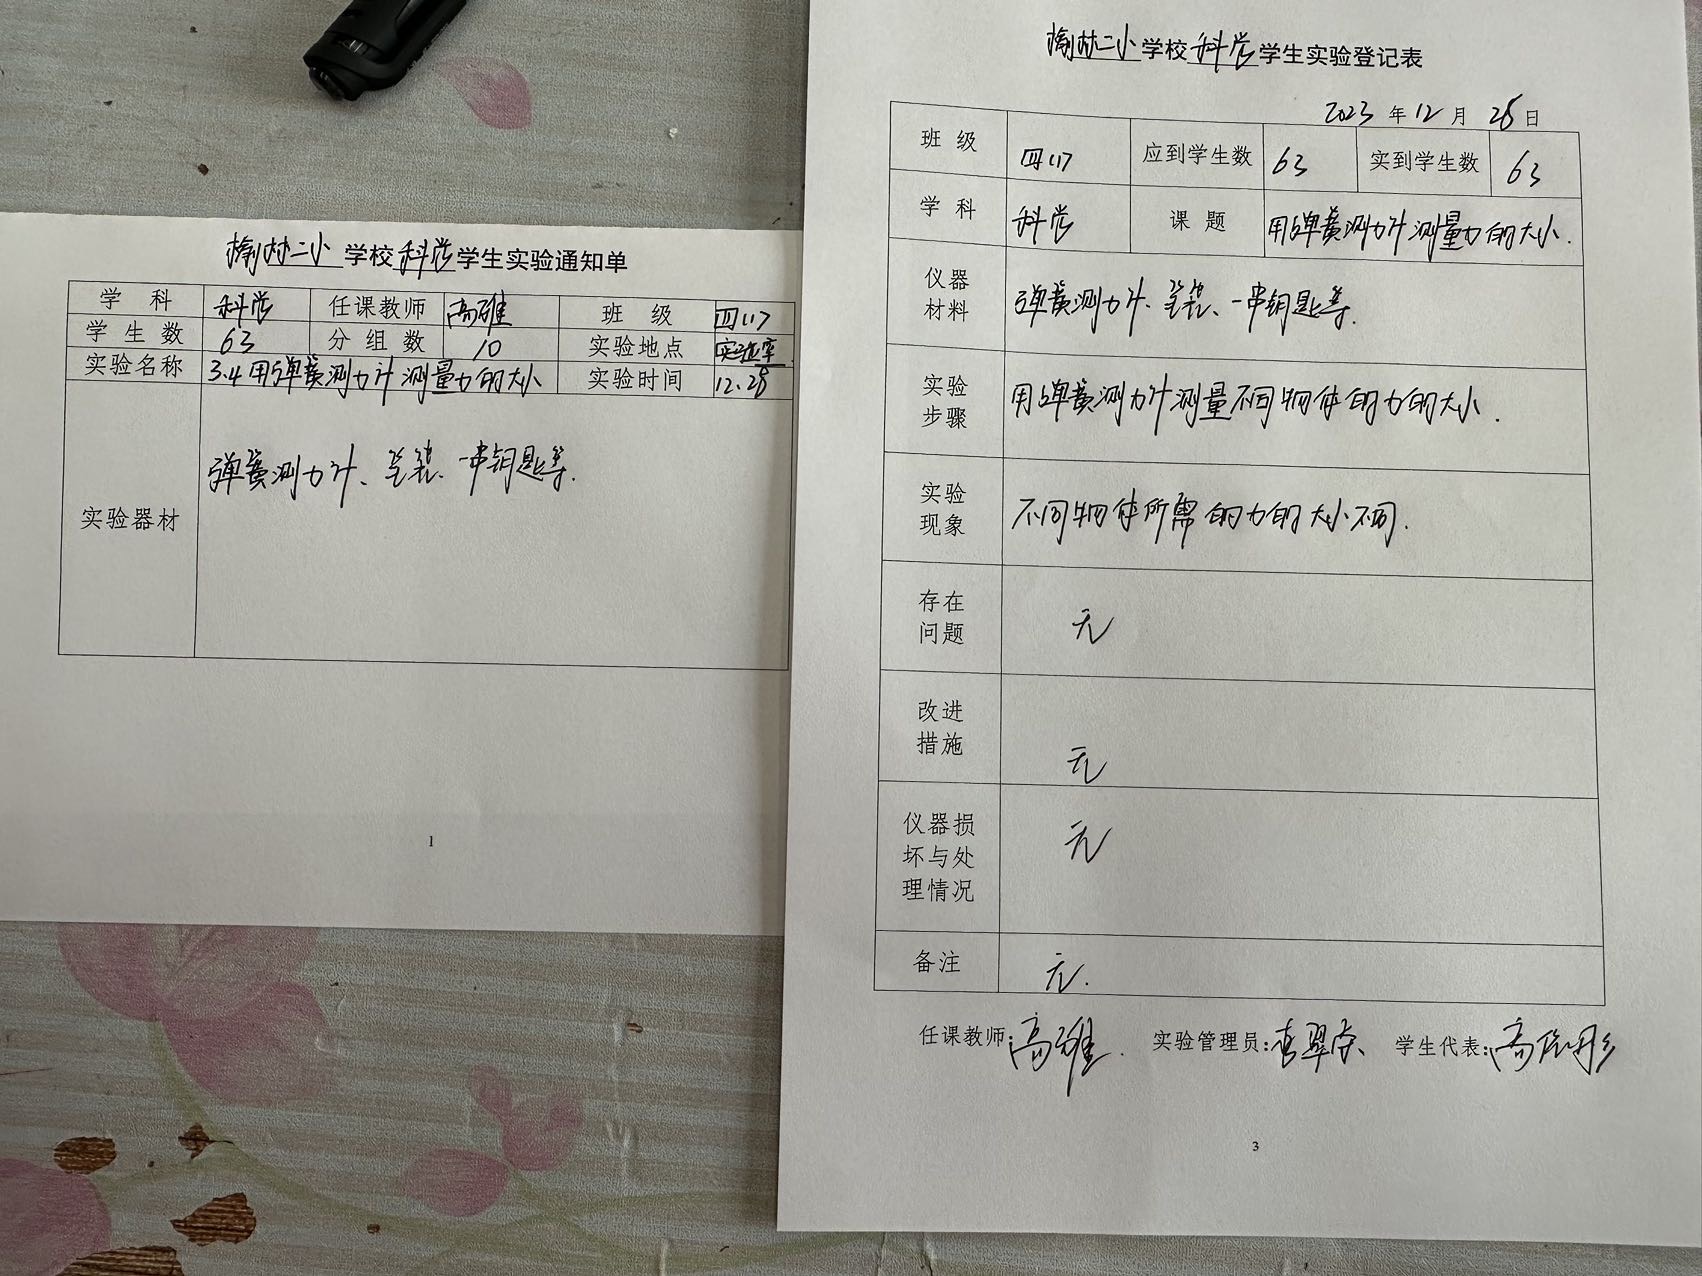 榆林二小学校科学学生实验通知单
学科 科学 任课教师 高雄 班级 四(17)
学生数 63 分组数 10 实验地点 实验室
实验名称 3.4用弹簧测力计测量力的大小 实验时间 12.28
弹簧测力计、笔袋、一串钥匙等.
实验器材
1
榆林二小学校科学学生实验登记表
2023年12月28日
班级 四(17) 应到学生数 63 实到学生数 63
学科 科学 课题 用弹簧测力计测量力的大小.
仪器
材料
弹簧测力计、笔袋、一串钥匙等.
实验
步骤
用弹簧测力计测量不同物体的力的大小.
实验
现象
不同物体所需的力的大小不同.
存在
问题
无
改进
措施
无
仪器损
坏与处
理情况
无
备注 无.
任课教师:高雄. 实验管理员: 学生代表:高
3